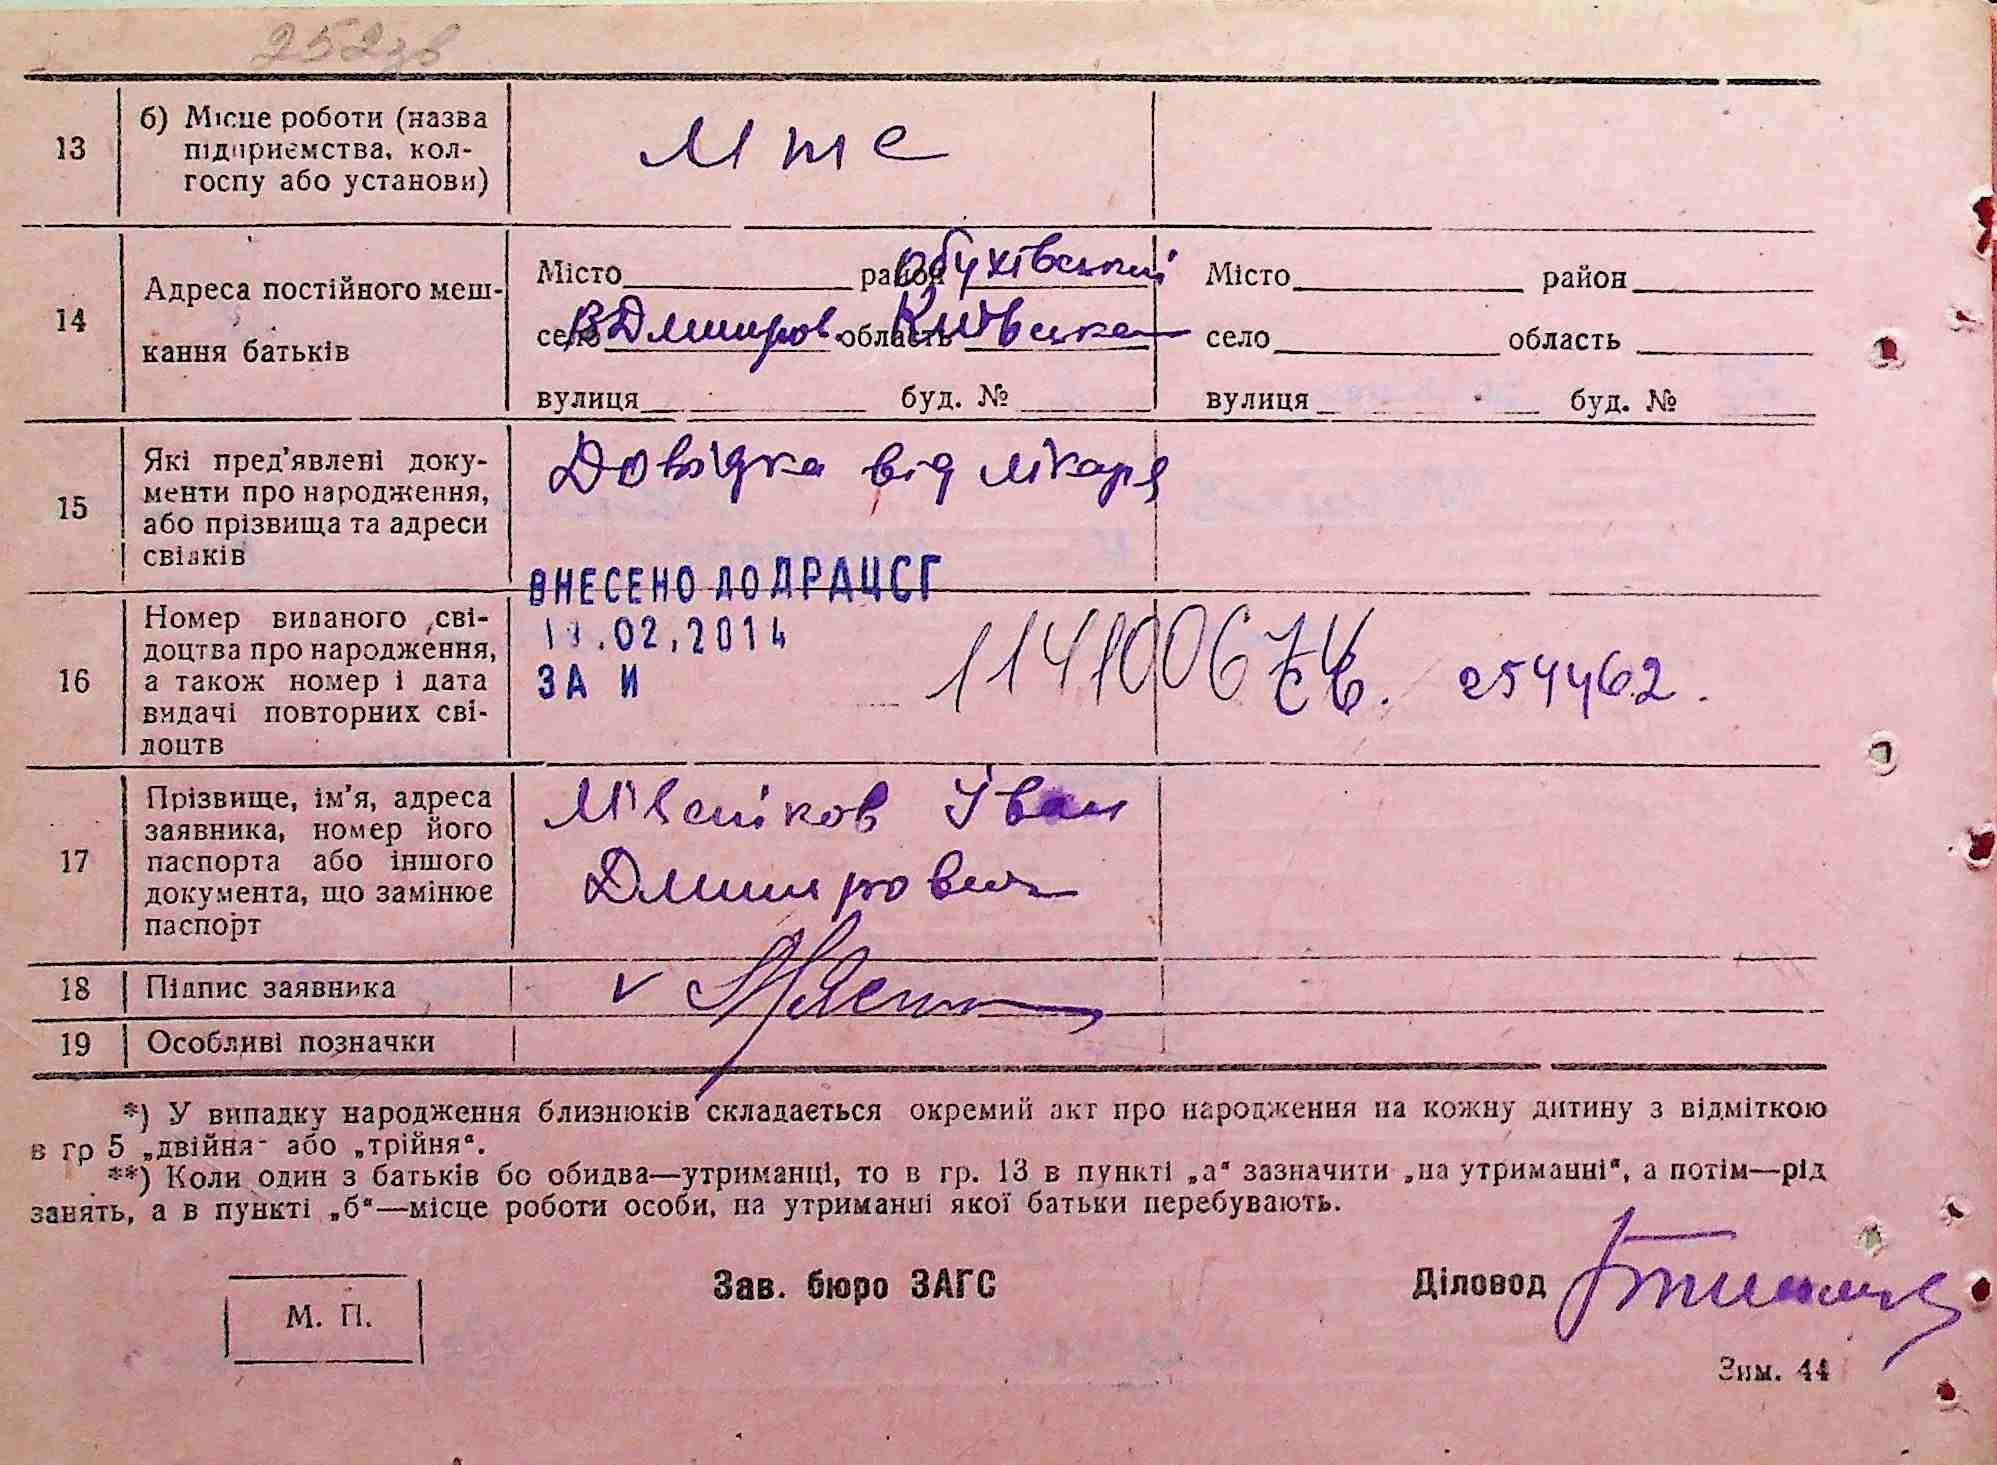 252зв
13
б) Місце роботи (назва
підприємства, кол-
госпу або установи)
Мтс
14
Адреса постійного меш-
кання батьків
Місто район Обухівський
село В Дмитров. область Київська
вулиця буд. №
Місто район
село область
вулиця буд. №
15
Які пред'явлені доку-
менти про народження,
або прізвища та адреси
свідків
Довідка від лікаря
ВНЕСЕНО ДО ДРАЦСГ
.02.2014
ЗА И
16
Номер виданого сві-
доцтва про народження,
а також номер і дата
видачі повторних сві-
доцтв
254462.
17
Прізвище, ім'я, адреса
заявника, номер його
паспорта або іншого
документа, що замінює
паспорт
Іван
Дмитрович
18
Підпис заявника
v
19
Особливі позначки
*) У випадку народження близнюків складається окремий акт про народження на кожну дитину з відміткою
в гр 5 „двійня" або „трійня".
**) Коли один з батьків бо обидва—утриманці, то в гр. 13 в пункті „а" зазначити „на утриманні", а потім—рід
занять, а в пункті „б"—місце роботи особи, на утриманні якої батьки перебувають.
М. П.
Зав. бюро ЗАГС
Діловод
Зим. 44